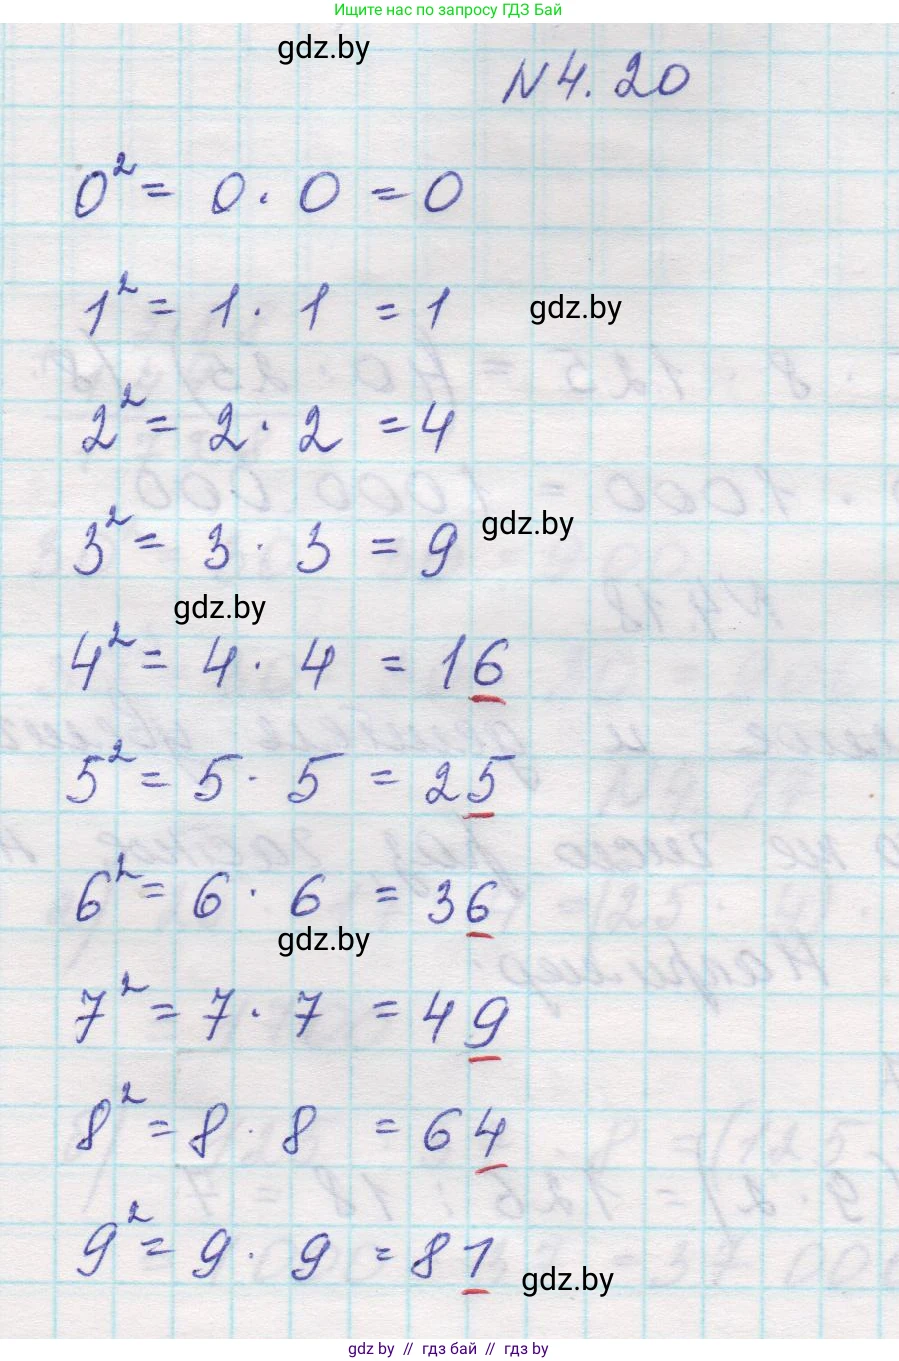 Ищите нас по запросу ГДЗ Бай
gdz.by
N 4.20
0² = 0 · 0 = 0
1² = 1 · 1 = 1
gdz.by
2² = 2 · 2 = 4
3² = 3 · 3 = 9
gdz.by
gdz.by
4² = 4 · 4 = 16
5² = 5 · 5 = 25
6² = 6 · 6 = 36
gdz.by
7² = 7 · 7 = 49
8² = 8 · 8 = 64
9² = 9 · 9 = 81
gdz.by
gdz.by // гдз бай // gdz.by